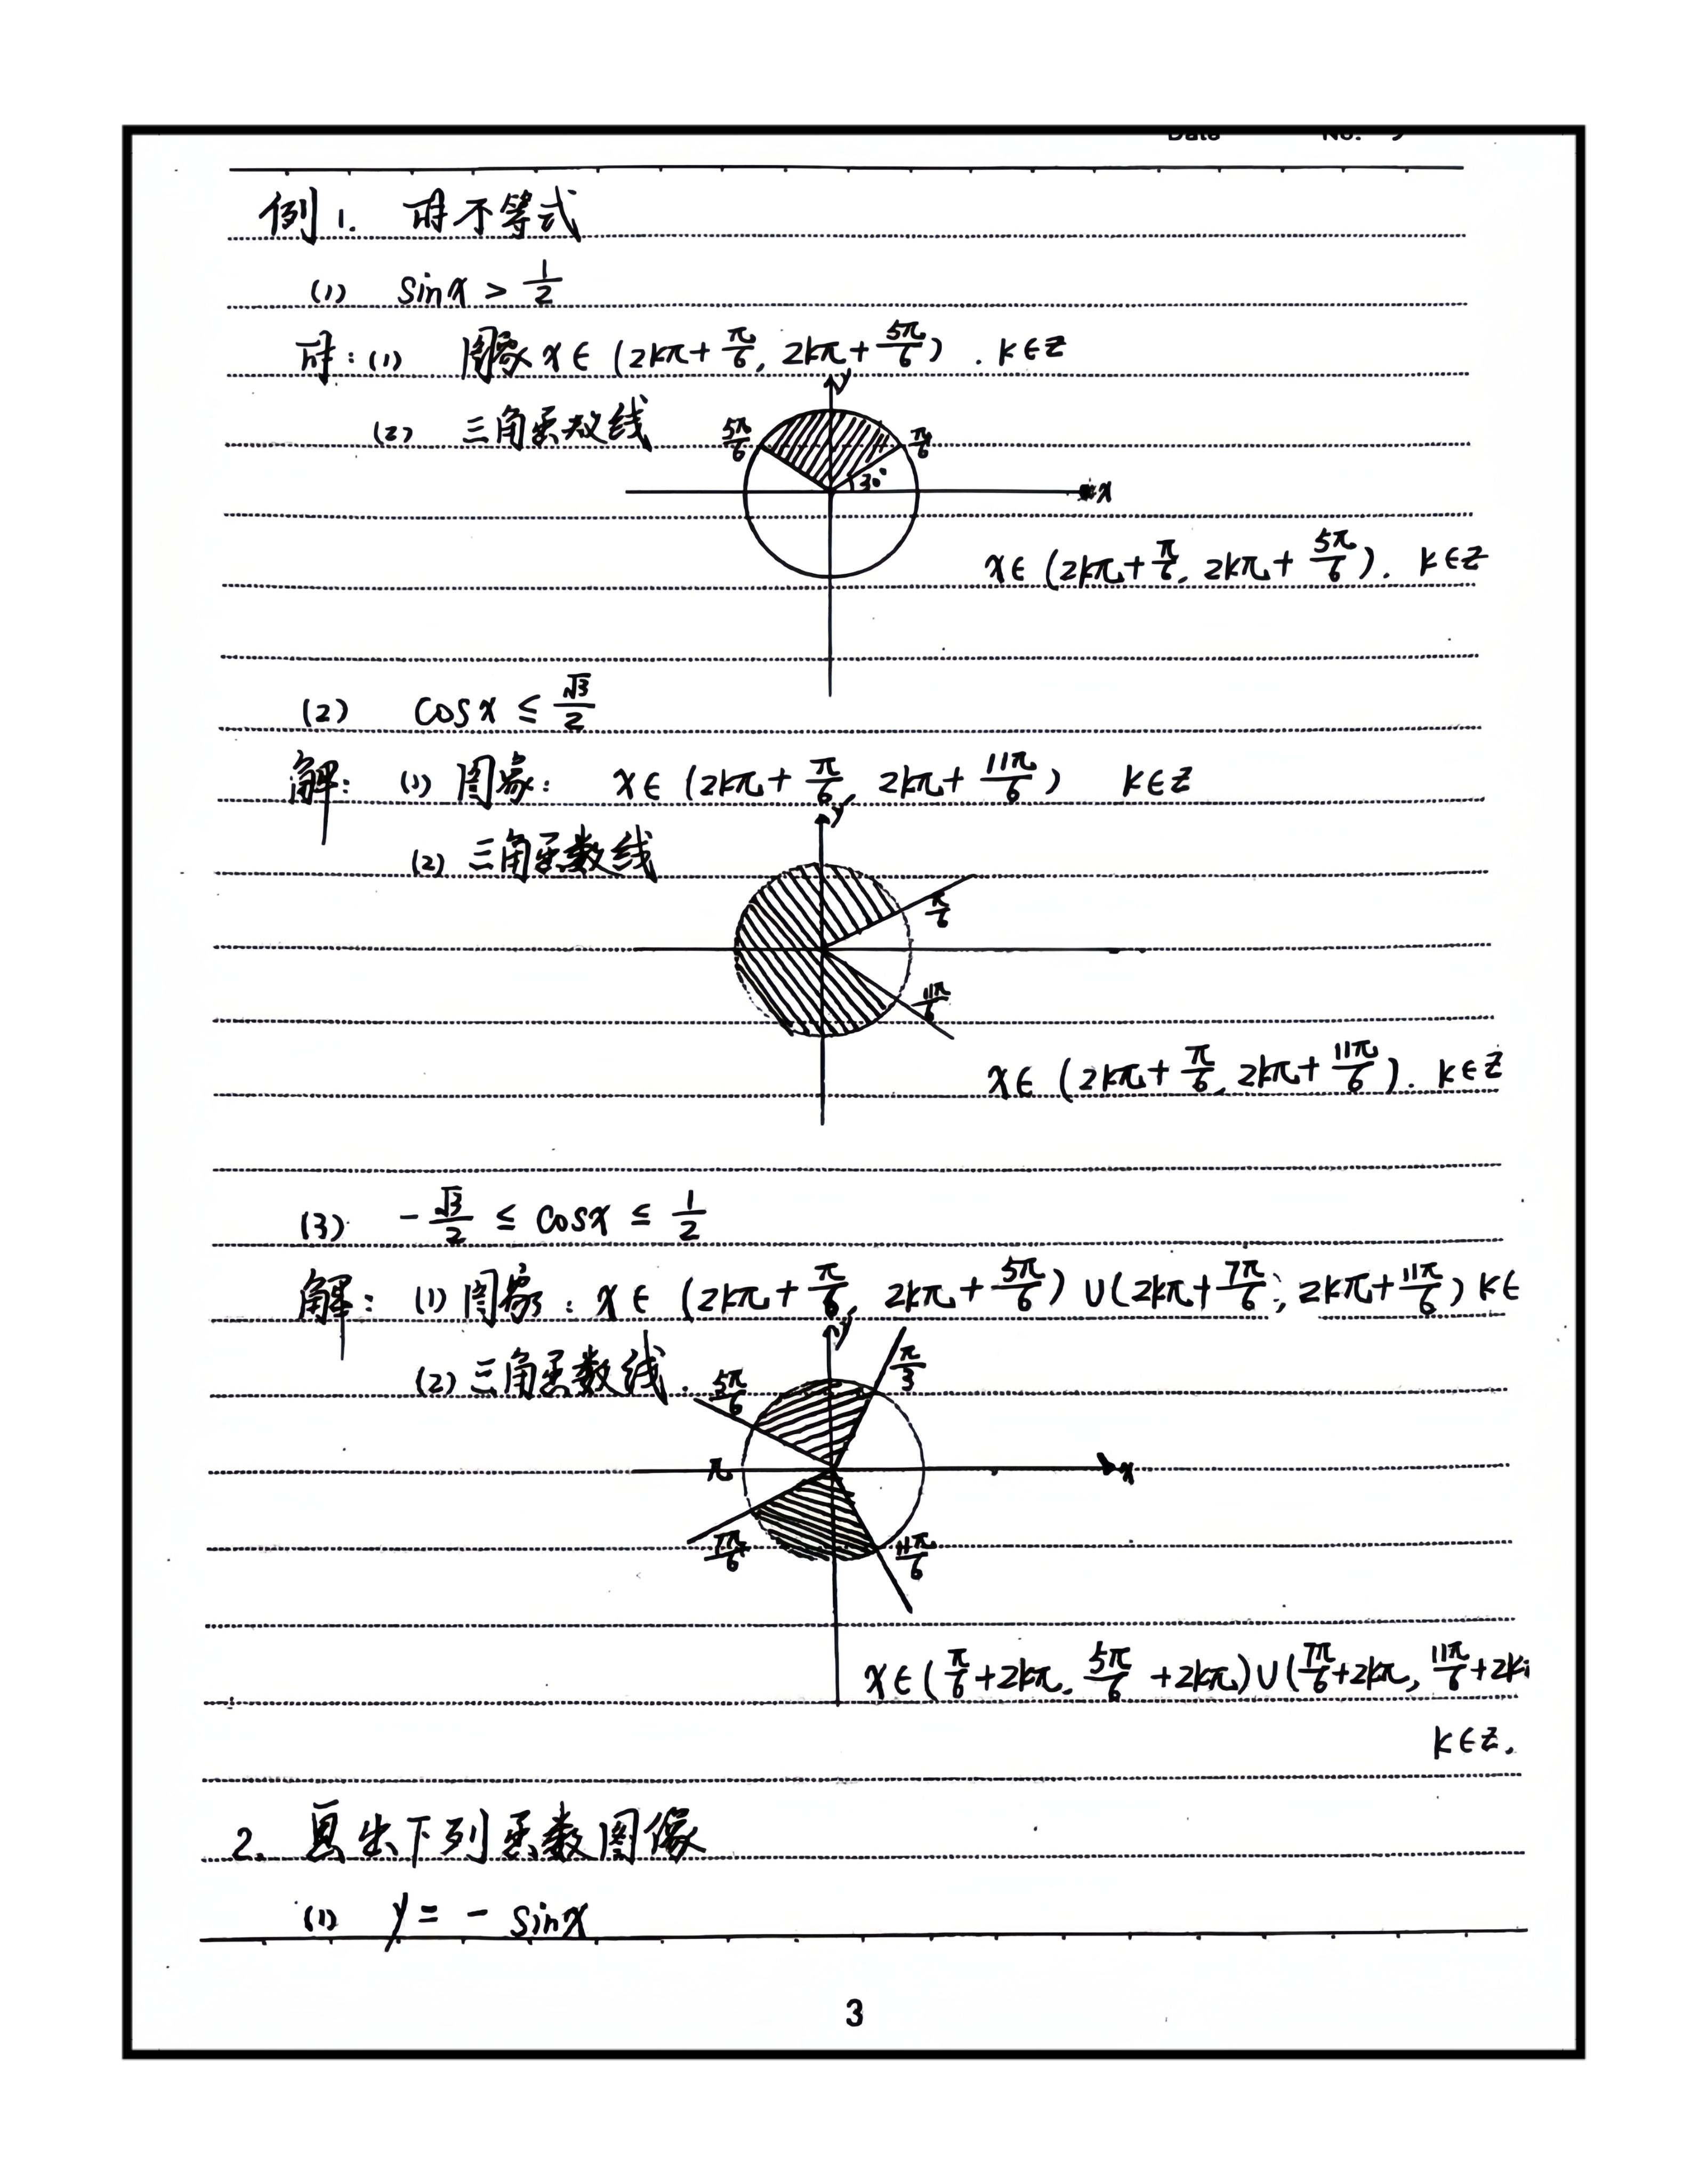 例1. 解不等式
(1) sinx > 1/2
解:(1) 图象 x∈(2kπ+π/6, 2kπ+5π/6). k∈Z
(2) 三角函数线
y
5π/6 π/6
30°
x
x∈(2kπ+π/6, 2kπ+5π/6). k∈Z
(2) cosx ≤ √3/2
解: (1) 图象: x∈(2kπ+π/6, 2kπ+11π/6) k∈Z
y
(2) 三角函数线
π/6
11π/6
x∈(2kπ+π/6, 2kπ+11π/6). k∈Z
(3) -√3/2 ≤ cosx ≤ 1/2
解: (1) 图象: x∈(2kπ+π/6, 2kπ+5π/6)∪(2kπ+7π/6, 2kπ+11π/6) k∈
y
(2) 三角函数线. 5π/6 π/3
π x
7π/6 11π/6
x∈(π/6+2kπ, 5π/6+2kπ)∪(7π/6+2kπ, 11π/6+2k
k∈Z.
2. 画出下列函数图像
(1) y = - sinx
3